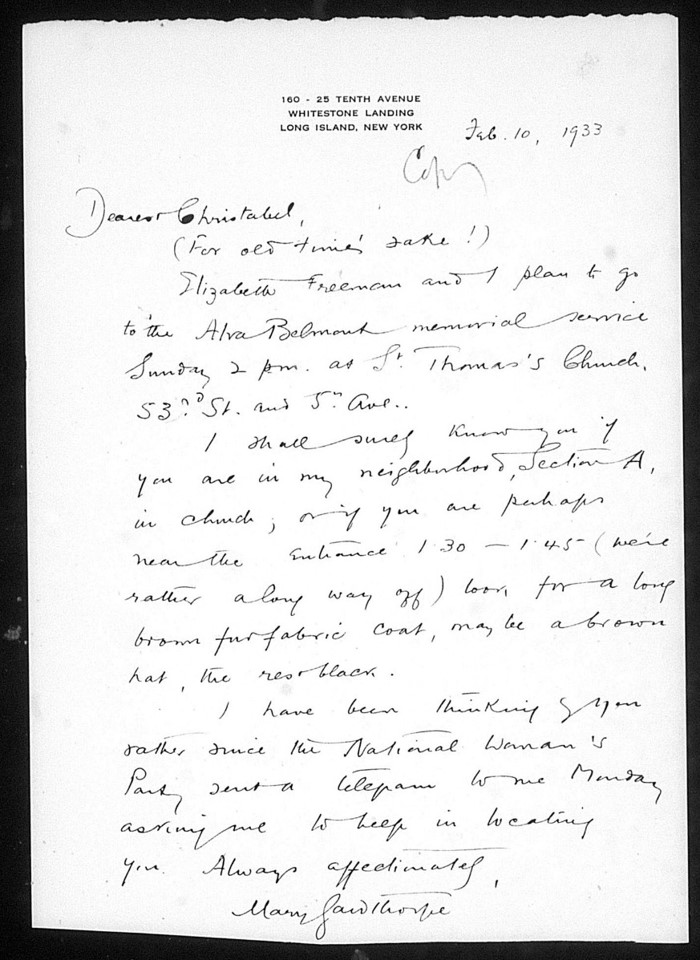 160 - 25 TENTH AVENUE
WHITESTONE LANDING
LONG ISLAND, NEW YORK
Feb. 10, 1933
Copy
Dearest Christabel,
(For old time's sake!)
Elizabeth Freeman and I plan to go
to the Alva Belmont memorial service
Sunday 2 pm. at St. Thomas's Church,
53rd St. and 5th Ave..
I shall surely know you if
you are in my neighborhood, Section A,
in church; or if you are perhaps
near the entrance 1.30 — 1.45 (we're
rather a long way off) look for a long
brown fur fabric coat, maybe a brown
hat, the rest black.
I have been thinking of you
rather since the National Woman's
Party sent a telegram to me Monday
asking me to help in locating
you. Always affectionately,
Mary Gawthorpe